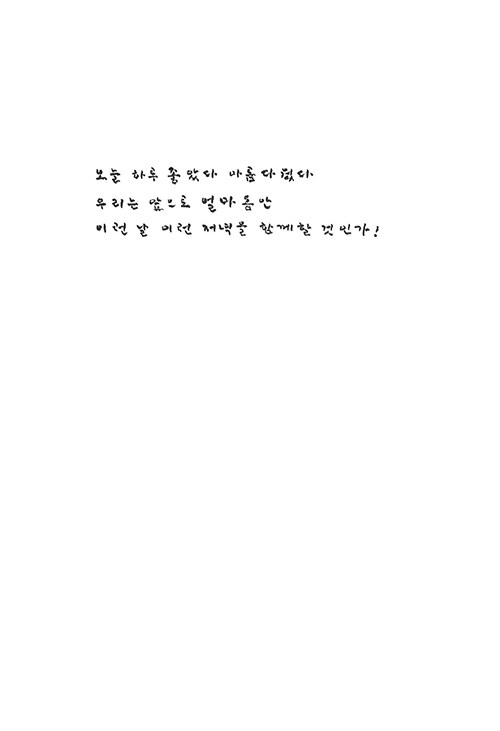 오늘 하루 좋았다 아름다웠다
우리는 앞으로 얼마동안
이런 날 이런 저녁을 함께할 것인가!